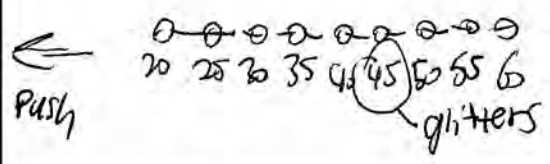 20 25 30 35 45 50 55 60
Push
glitters